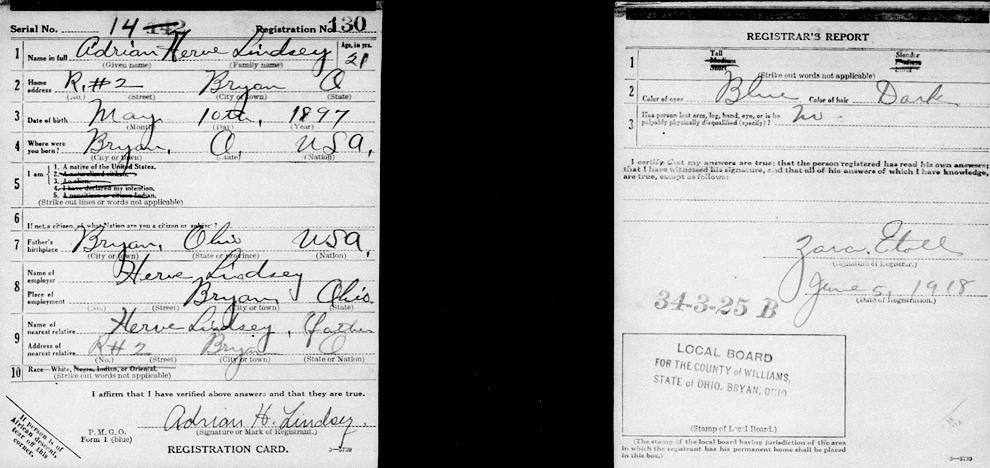 Serial No. 14 142 Registration No. 130
1 Name in full Adrian Herve Lindsey Age, in yrs. 21
(Given name) (Family name)
2 Home address R. #2 Bryan O
(No.) (Street) (City or town) (State)
3 Date of birth May 10th, 1897
(Month) (Day) (Year)
4 Where were you born? Bryan, O, USA,
(City or town) (State) (Nation)
5 I am
1. A native of the United States.
2. A naturalized citizen.
3. An alien.
4. I have declared my intention.
5. A citizen Indian.
(Strike out lines or words not applicable)
6 If not a citizen, of what Nation are you a citizen or subject?
7 Father's birthplace Bryan, Ohio USA,
(City or town) (State or province) (Nation)
8 Name of employer Herve Lindsey
Place of employment Bryan, Ohio.
(No.) (Street) (City or town) (State)
9 Name of nearest relative Herve Lindsey, Father
Address of nearest relative R#2 Bryan O
(No.) (Street) (City or town) (State or Nation)
10 Race—White, Negro, Indian, or Oriental.
(Strike out words not applicable)
I affirm that I have verified above answers and that they are true.
Adrian H. Lindsey.
(Signature or Mark of Registrant.)
P. M. G. O.
Form 1 (blue)
REGISTRATION CARD. 3—5729
If person is of
African descent
tear off this
corner.
REGISTRAR'S REPORT
1 Tall Slender
Medium Medium
Short Stout
(Strike out words not applicable)
2 Color of eyes Blue Color of hair Dark
3 Has person lost arm, leg, hand, eye, or is he palpably physically disqualified (specify)? No.
I certify that my answers are true; that the person registered has read his own answers;
that I have witnessed his signature, and that all of his answers of which I have knowledge,
are true, except as follows:
(Signature of Registrar.)
June 5, 1918
(Date of Registration.)
34-3-25 B
LOCAL BOARD
FOR THE COUNTY of WILLIAMS,
STATE of OHIO. BRYAN, OHIO
(Stamp of Local Board.)
(The stamp of the local board having jurisdiction of the area
in which the registrant has his permanent home shall be placed
in this box.) 3—5729